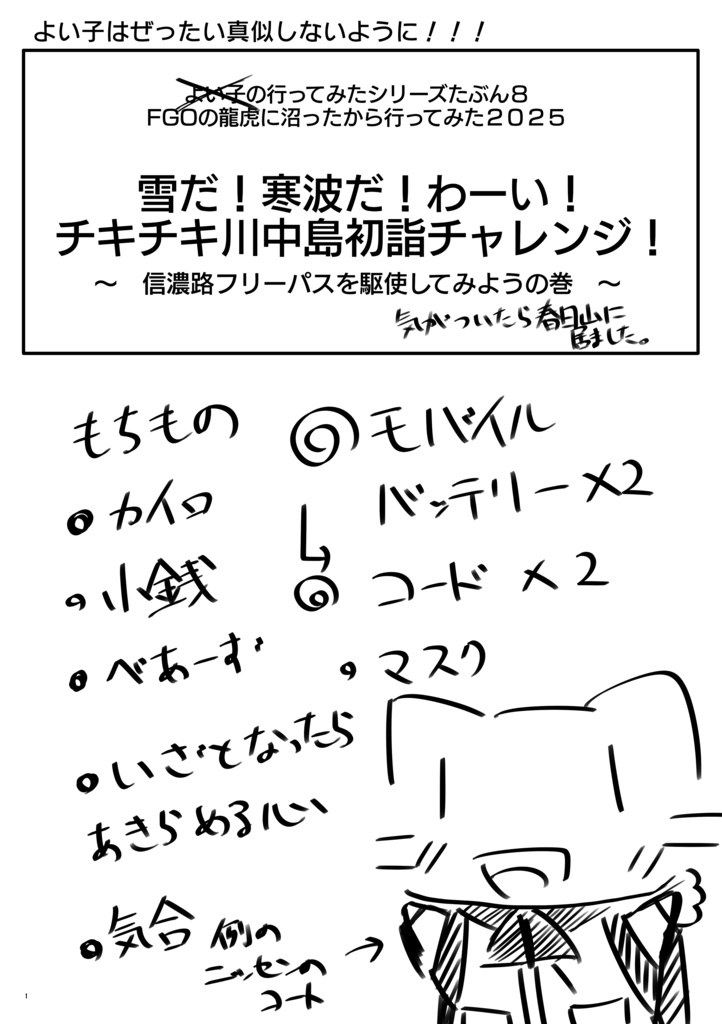 よい子はぜったい真似しないように！！！
よい子の行ってみたシリーズたぶん８
FGOの龍虎に沼ったから行ってみた２０２５
雪だ！寒波だ！わーい！
チキチキ川中島初詣チャレンジ！
～　信濃路フリーパスを駆使してみようの巻　～
気がついたら春日山に
居ました。
もちもの
カイロ
小銭
べあーず
いざとなったら
あきらめる心
気合
モバイル
バッテリー×2
コード ×2
マスク
例の
ニッセンの
コート
1